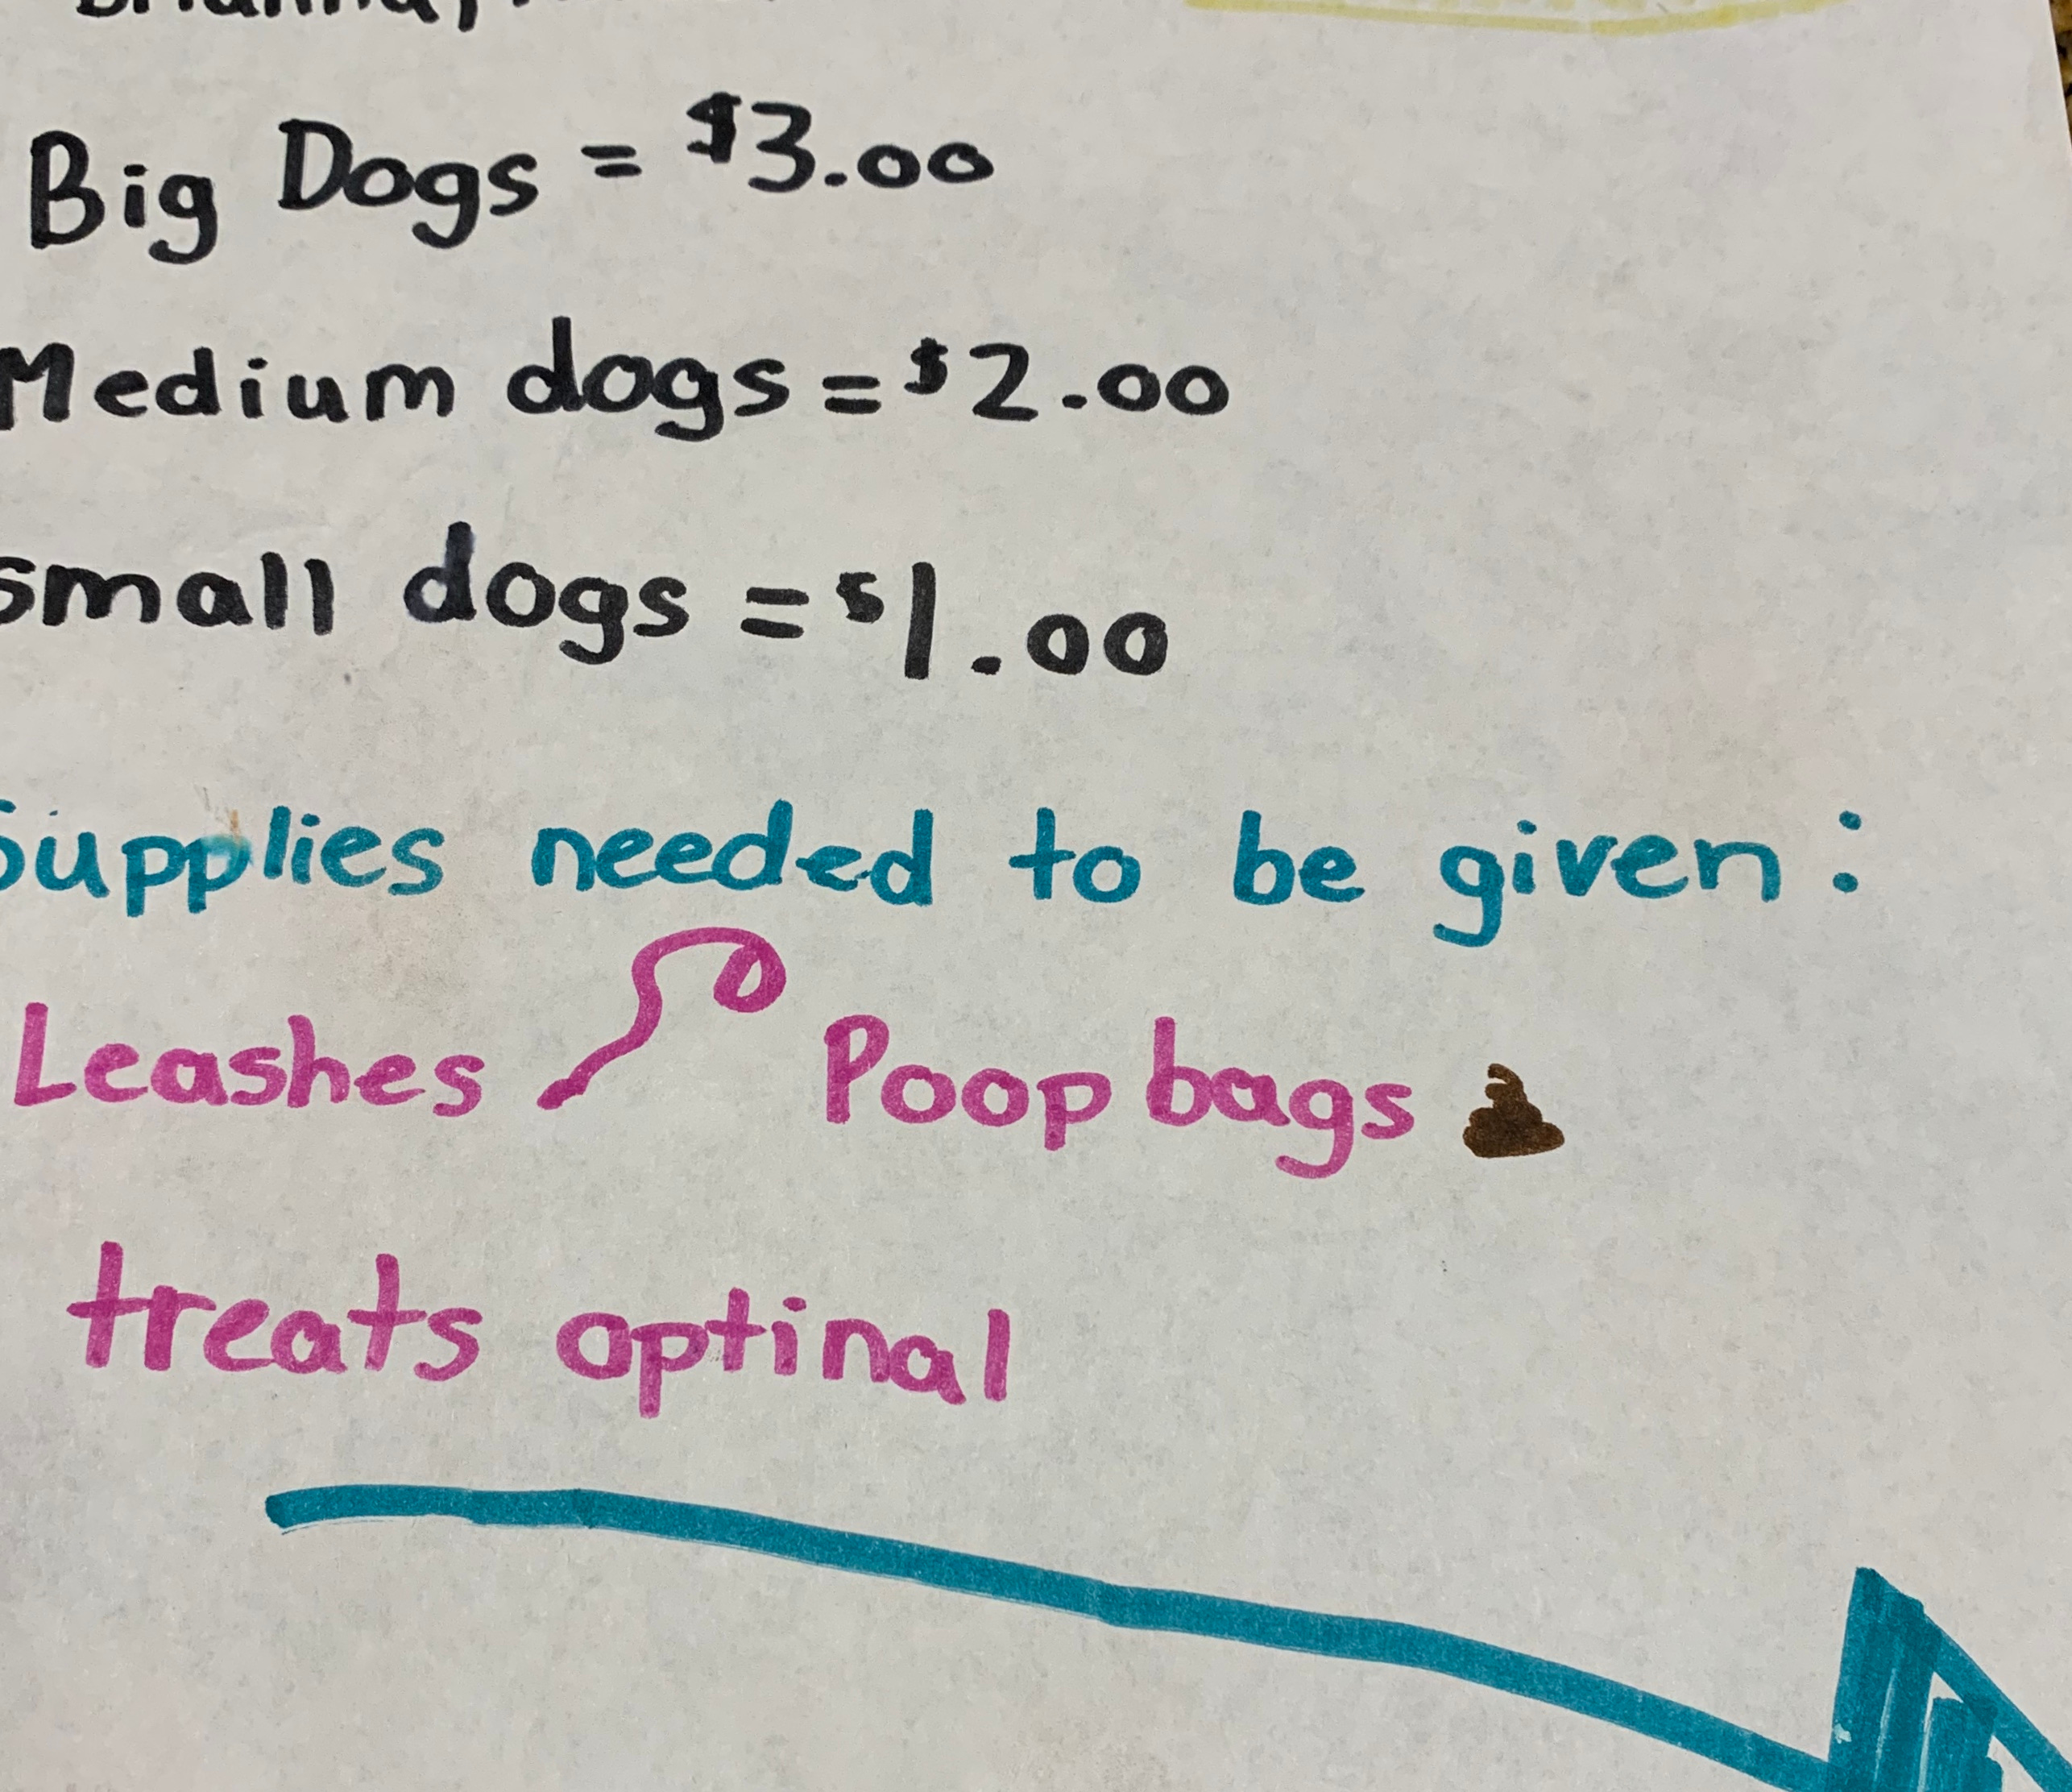 Brianna,
Big Dogs = $3.00
Medium dogs = $2.00
small dogs = $1.00
Supplies needed to be given:
Leashes Poop bags
treats optinal